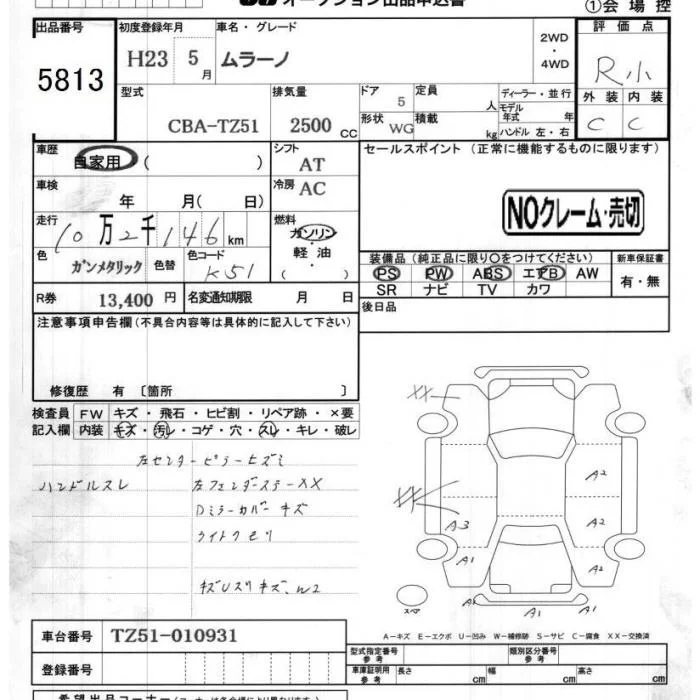 オークション出品申込書
①会場控
出品番号 初度登録年月 車名・グレード 2WD・4WD 評価点
5813 H23 5月 ムラーノ R小
外装 内装
C C
型式 排気量 ドア 定員 ディーラー・並行
CBA-TZ51 2500 CC 5 人 モデル年式 年
形状 WG 積載 kg ハンドル 左・右
車歴 自家用 ( ) シフト AT
セールスポイント(正常に機能するものに限ります)
車検 年 月( 日) 冷房 AC
NOクレーム・売切
走行 10万2千146km 燃料 ガソリン 軽油 ( ・ )
色 ガンメタリック 色替 色コード K51
装備品(純正品に限り○をつけてください) 新車保証書
PS PW ABS エアB AW 有・無
SR ナビ TV カワ
R券 13,400円 名変通知期限 月 日
後日品
注意事項申告欄(不具合内容等は具体的に記入して下さい)
修復歴 有〔箇所 〕
検査員 FW キズ・飛石・ヒビ割・リペア跡・×要
記入欄 内装 キズ・汚レ・コゲ・穴・スレ・キレ・破レ
左センターピラーヒズミ
ハンドルスレ 左フェンダーステーXX
Dミラーカバーキズ
ライトクモリ
キズUスリキズ、W2
XX
XX
A2
A2
A3
A1
A2
A1
A1
A1
スペア
A-キズ E-エクボ U-凹み W-補修跡 S-サビ C-腐食 XX-交換済
車台番号 TZ51-010931
型式指定番号 参考 類別区分番号 参考
登録番号 車庫証明用 参考 長さ cm 幅 cm 高さ cm
希望出品コーナー